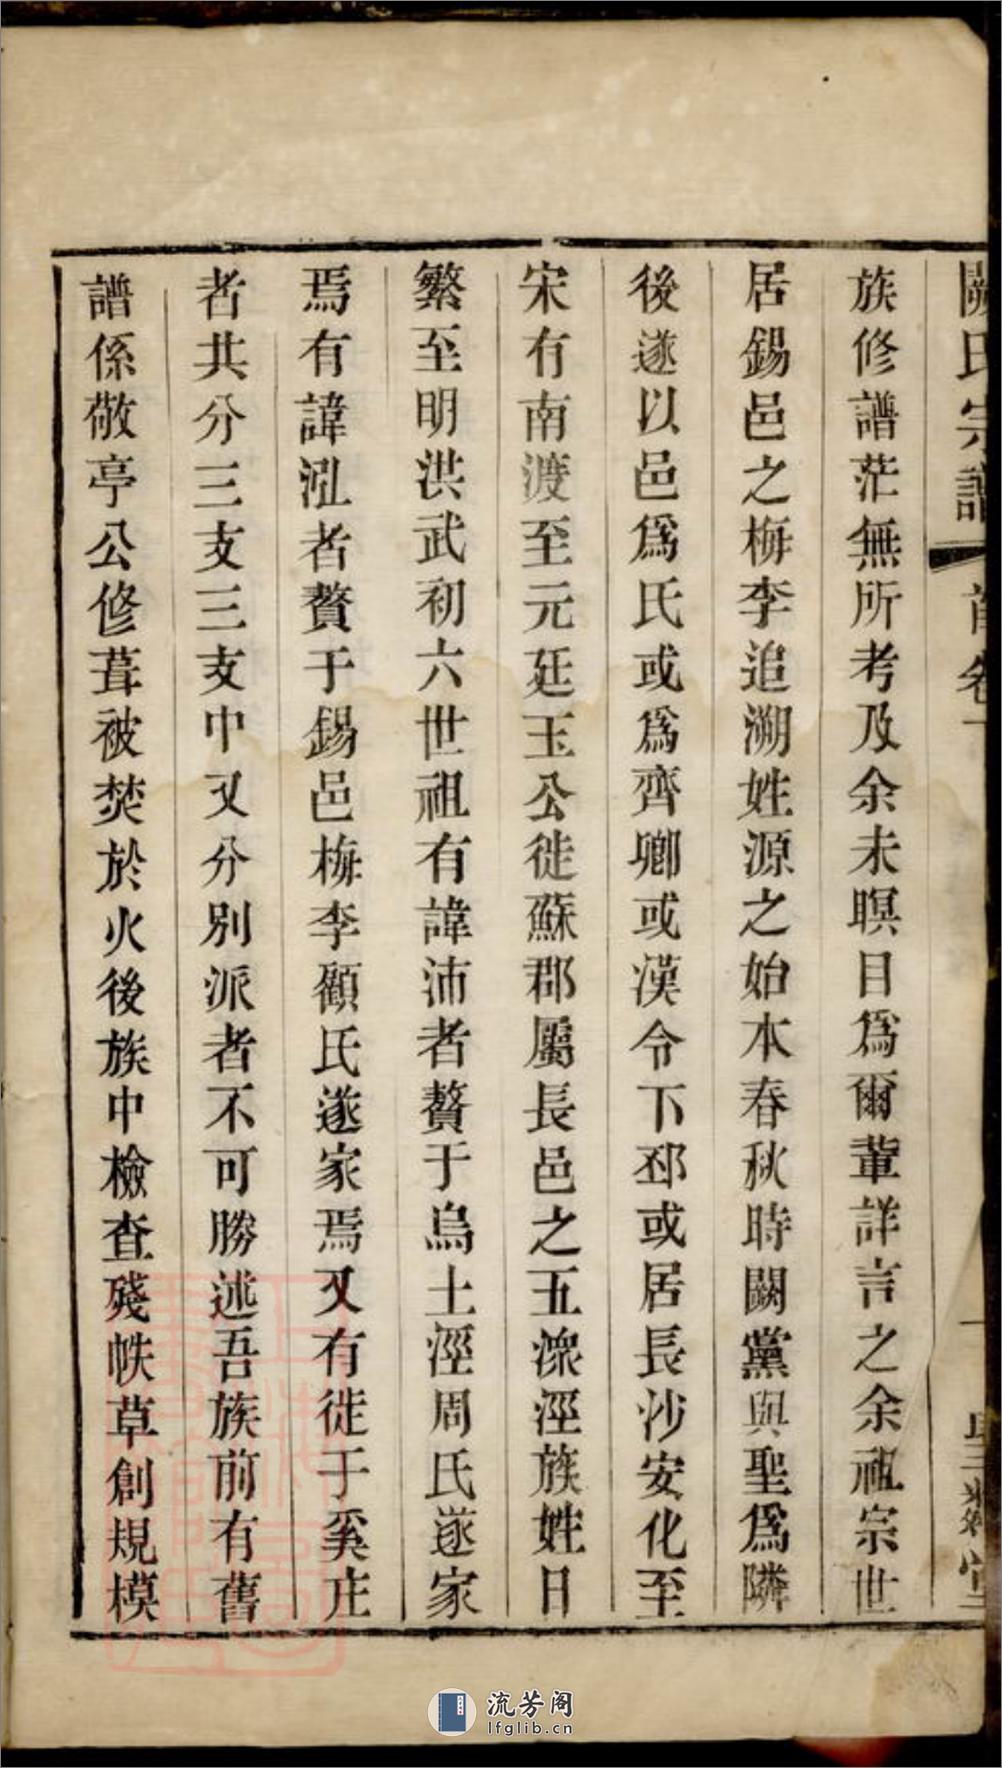 闕氏宗譜 首卷 一
族修譜茫無所考及余未暝目爲爾輩詳言之余祖宗世
居錫邑之梅李追溯姓源之始本春秋時闕黨與聖爲隣
後遂以邑爲氏或爲齊卿或漢令下邳或居長沙安化至
宋有南渡至元廷玉公徙蘇郡屬長邑之五潨涇族姓日
繁至明洪武初六世祖有諱沛者贅于烏土涇周氏遂家
焉有諱泓者贅于錫邑梅李顧氏遂家焉又有徙于奚庄
者共分三支三支中又分別派者不可勝述吾族前有舊
譜係敬亭公修葺被焚於火後族中檢查殘帙草創規模
流芳阁
lfglib.cn